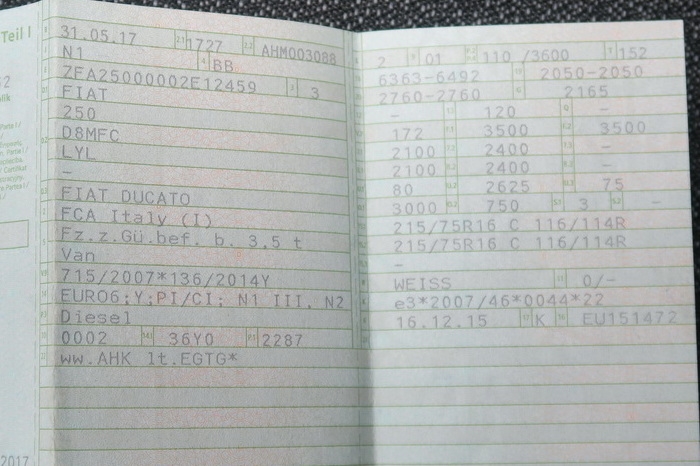 Teil I
31.05.17 2.1 1727 2.2 AHM003088
N1 4 BB
ZFA25000002E12459 3 3
FIAT
250
D8MFC
LYL
-
FIAT DUCATO
FCA Italy (I)
Fz.z.Gü.bef. b. 3,5 t
Van
715/2007*136/2014Y
EURO6;Y;PI/CI; N1 III, N2
Diesel
0002 14.1 36Y0 P.3 2287
ww.AHK lt.EGTG*
2 9 01 110 /3600 T 152
6363-6492 2050-2050
2760-2760 G 2165
- 120 -
172 3500 3500
2100 2400 -
2100 2400 -
80 2625 75
3000 750 3 -
215/75R16 C 116/114R
215/75R16 C 116/114R
-
WEISS 0/-
e3*2007/46*0044*22
16.12.15 K EU151472
2017